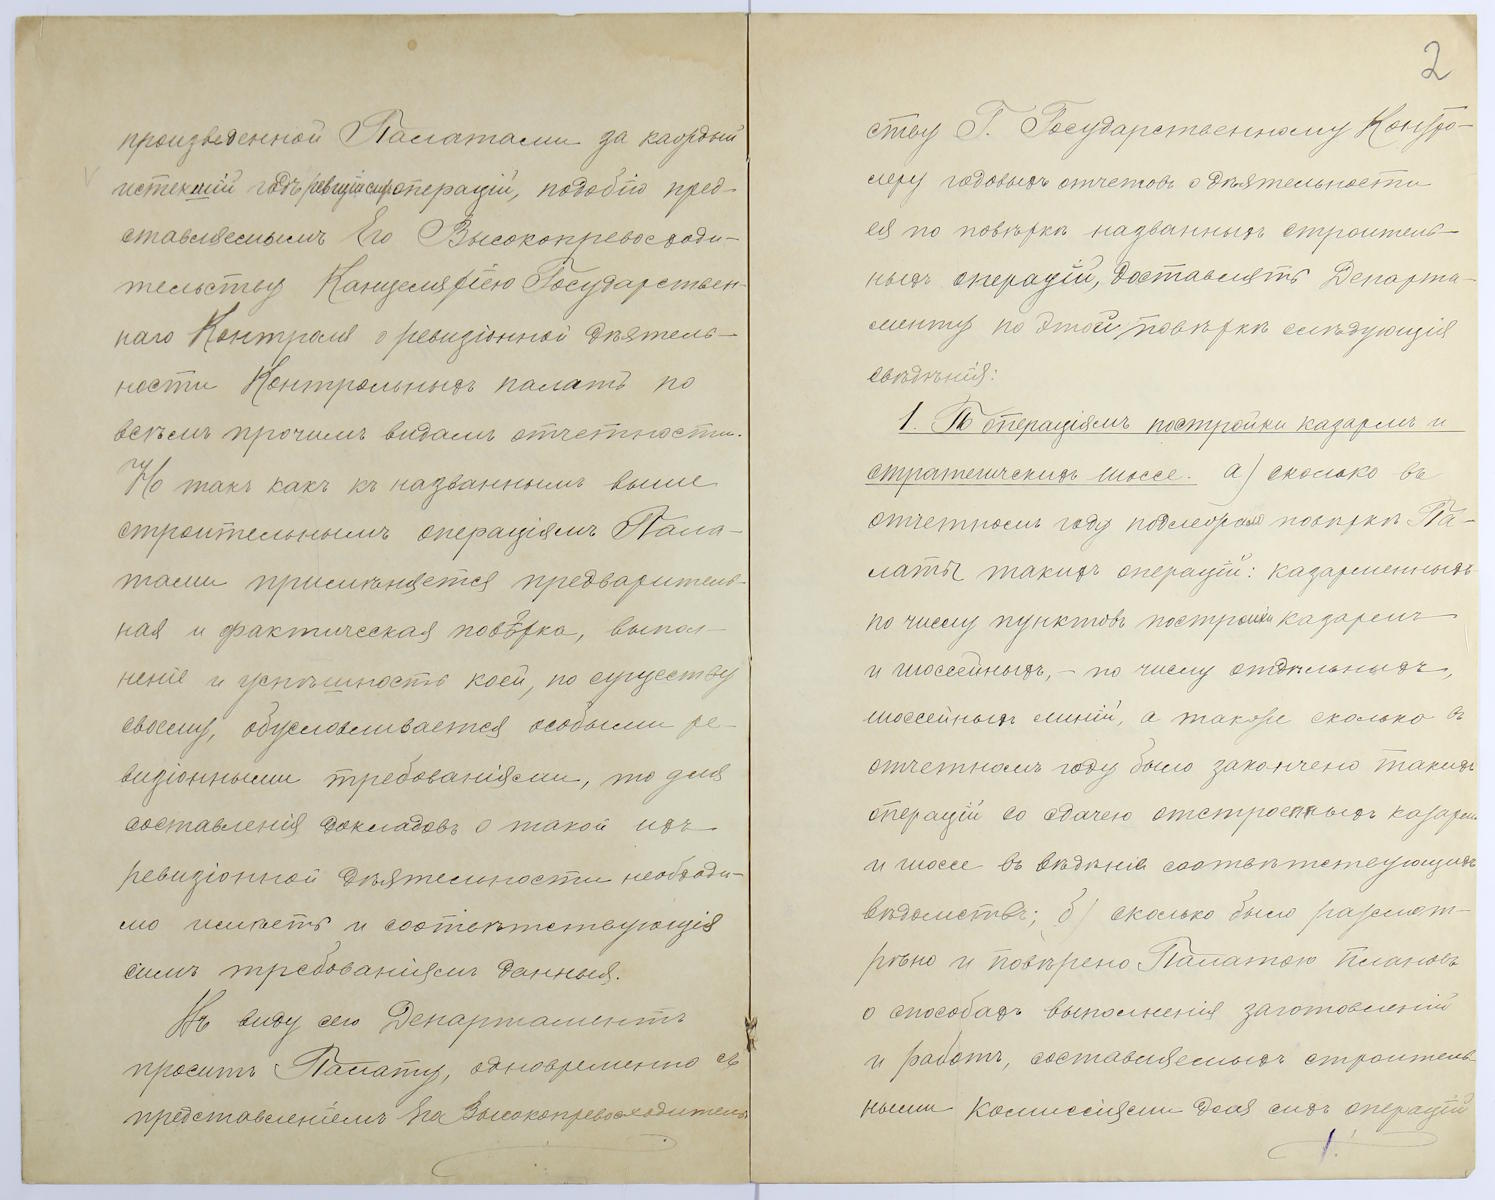 произведенной Палатами за каждый
истекшій годъ ревизіи сихъ операцій, подобно пред-
ставляемымъ Его Высокопревосходи-
тельству Канцеляріею Государствен-
наго Контроля о ревизіонной дѣятель-
ности Контрольныхъ палатъ по
всѣмъ прочимъ видамъ отчетности.
Но такъ какъ къ названнымъ выше
строительнымъ операціямъ Пала-
тами примѣняется предваритель-
ная и фактическая повѣрка, выпол-
неніе и успѣшность коей, по существу
своему, обусловливается особыми ре-
визіонными требованіями, то для
составленія докладовъ о такой ихъ
ревизіонной дѣятельности необходи-
мо имѣть и соотвѣтствующія
симъ требованіямъ данныя.
Въ виду сего Департаментъ
проситъ Палату, одновременно съ
представленіемъ Его Высокопревосходитель-
2
ству Г. Государственному Контро-
леру годовыхъ отчетовъ о дѣятельности
ея по повѣркѣ названныхъ строитель-
ныхъ операцій, доставлять Департа-
менту по этой повѣркѣ слѣдующія
свѣдѣнія:
1. По операціямъ постройки казармъ и
стратегическихъ шоссе. а) сколько въ
отчетномъ году подлежало повѣркѣ Па-
латы такихъ операцій: казарменныхъ
по числу пунктовъ постройки казармъ
и шоссейныхъ, - по числу отдѣльныхъ,
шоссейныхъ линій, а также сколько въ
отчетномъ году было закончено такихъ
операцій со сдачею отстроенныхъ казармъ
и шоссе въ вѣдѣніе соотвѣтствующихъ
вѣдомствъ; б) сколько было разсмот-
рѣно и повѣрено Палатою плановъ
о способахъ выполненія заготовленій
и работъ, составляемыхъ строитель-
ными Комиссіями для сихъ операцій